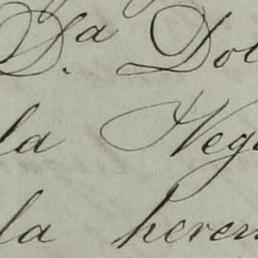 D.ª Dol
la Veg
la heren